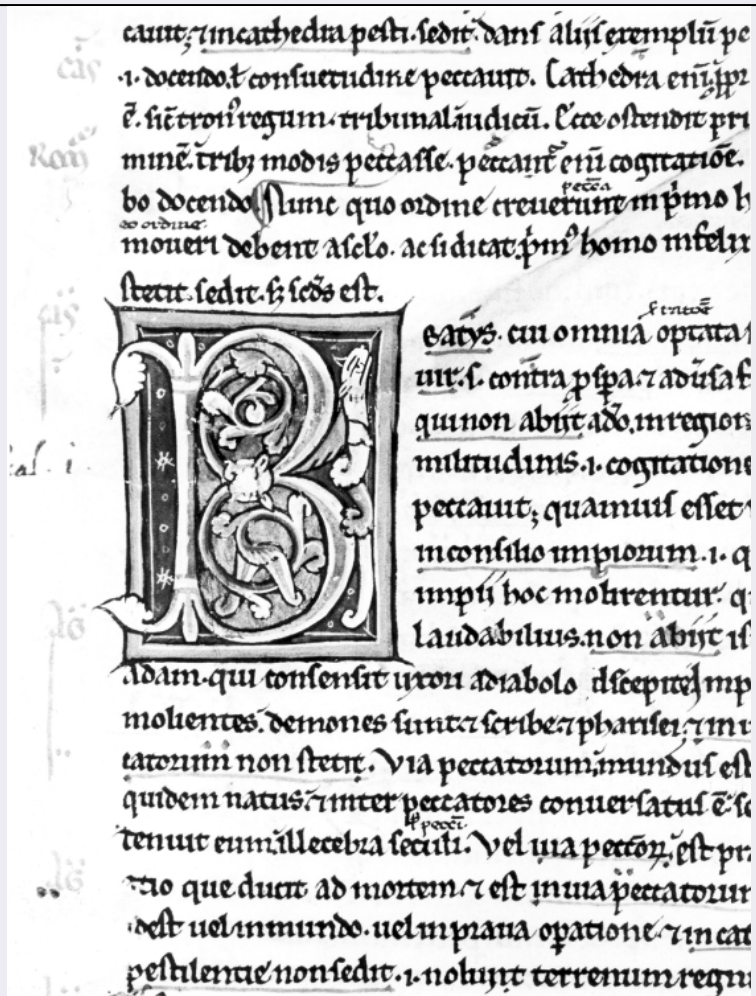 cauit; ⁊ in cathedra pesti. sedit. dans alijs exemplū pe
.i. docendo. ł consuetudine peccauit. Cathedra eni
ē. sic tron᷒ regum. tribunal iudicū. Ecce ostendit pri
minē. tribꝫ modis peccasse. peccant eni cogitatiōe.
pecca
bo docendo Nunc quo ordine creuerunt in pͥmo h
eo ordine
moueri debent a sclo. ac si dicat. pͥm᷒ homo infelix
stetit. sedit. sꝫ scds est.
B
eatus. cui omnia optata
uit. s. contra ꝓspa. ⁊ aduersa
qui non abijt a do. in region
militudinis. i. cogitatione
peccauit; quamuis esset
in consilio impiorum. i. q
impij hoc molirentur. q
laudabilius. non abijt
adam. qui consensit uxori a diabolo
molientes. demones sunt ⁊ scribe ⁊ pharisei; ⁊ in
catorum non stetit. Via peccatorum, mundus est
quidem natus. ⁊ inter peccatores conuersatus ē.
tenuit eum illecebra seculi. Vel uia peccōꝝ, est pr
tio que ducit ad mortem ⁊ est in uia peccatorum
idest uel in mundo. uel in praua oꝑatione ⁊ in cat
pestilentie non sedit. i. noluit terrenum regnu